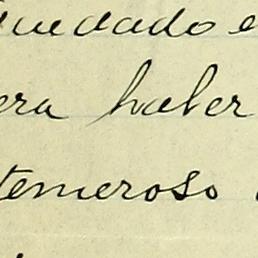 quedado e
era haber
temeroso